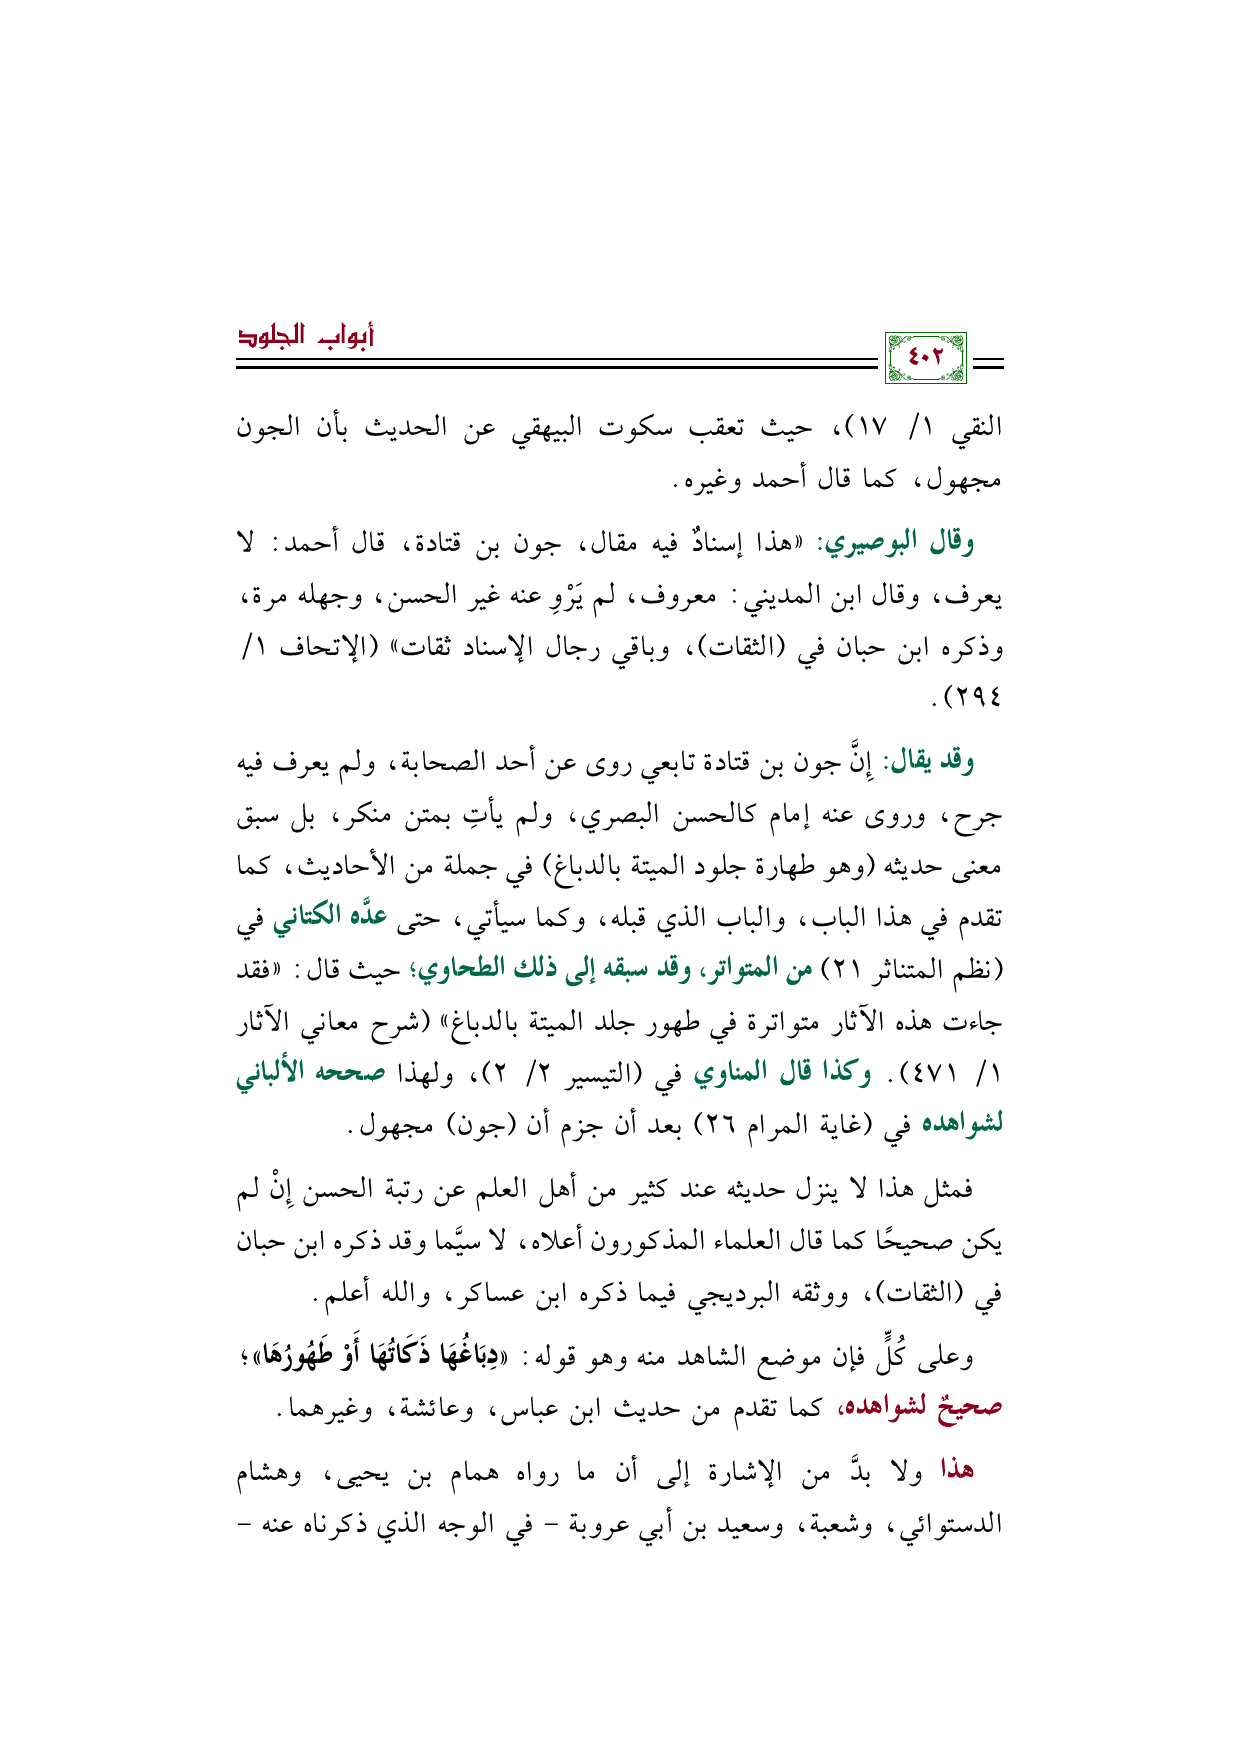 أبواب الجلود
٤٠٢
النقي ١/ ١٧)، حيث تعقب سكوت البيهقي عن الحديث بأن الجون
مجهول، كما قال أحمد وغيره.
وقال البوصيري: «هذا إسنادٌ فيه مقال، جون بن قتادة، قال أحمد: لا
يعرف، وقال ابن المديني: معروف، لم يَرْوِ عنه غير الحسن، وجهله مرة،
وذكره ابن حبان في (الثقات)، وباقي رجال الإسناد ثقات» (الإتحاف ١/
٢٩٤).
وقد يقال: إِنَّ جون بن قتادة تابعي روى عن أحد الصحابة، ولم يعرف فيه
جرح، وروى عنه إمام كالحسن البصري، ولم يأتِ بمتن منكر، بل سبق
معنى حديثه (وهو طهارة جلود الميتة بالدباغ) في جملة من الأحاديث، كما
تقدم في هذا الباب، والباب الذي قبله، وكما سيأتي، حتى عدَّه الكتاني في
(نظم المتناثر ٢١) من المتواتر، وقد سبقه إلى ذلك الطحاوي؛ حيث قال: «فقد
جاءت هذه الآثار متواترة في طهور جلد الميتة بالدباغ» (شرح معاني الآثار
١/ ٤٧١). وكذا قال المناوي في (التيسير ٢/ ٢)، ولهذا صححه الألباني
لشواهده في (غاية المرام ٢٦) بعد أن جزم أن (جون) مجهول.
فمثل هذا لا ينزل حديثه عند كثير من أهل العلم عن رتبة الحسن إِنْ لم
يكن صحيحًا كما قال العلماء المذكورون أعلاه، لا سيَّما وقد ذكره ابن حبان
في (الثقات)، ووثقه البرديجي فيما ذكره ابن عساكر، والله أعلم.
وعلى كُلٍّ فإن موضع الشاهد منه وهو قوله: «دِبَاغُهَا ذَكَاتُهَا أَوْ طَهُورُهَا»؛
صحيحٌ لشواهده، كما تقدم من حديث ابن عباس، وعائشة، وغيرهما.
هذا ولا بدَّ من الإشارة إلى أن ما رواه همام بن يحيى، وهشام
الدستوائي، وشعبة، وسعيد بن أبي عروبة - في الوجه الذي ذكرناه عنه -